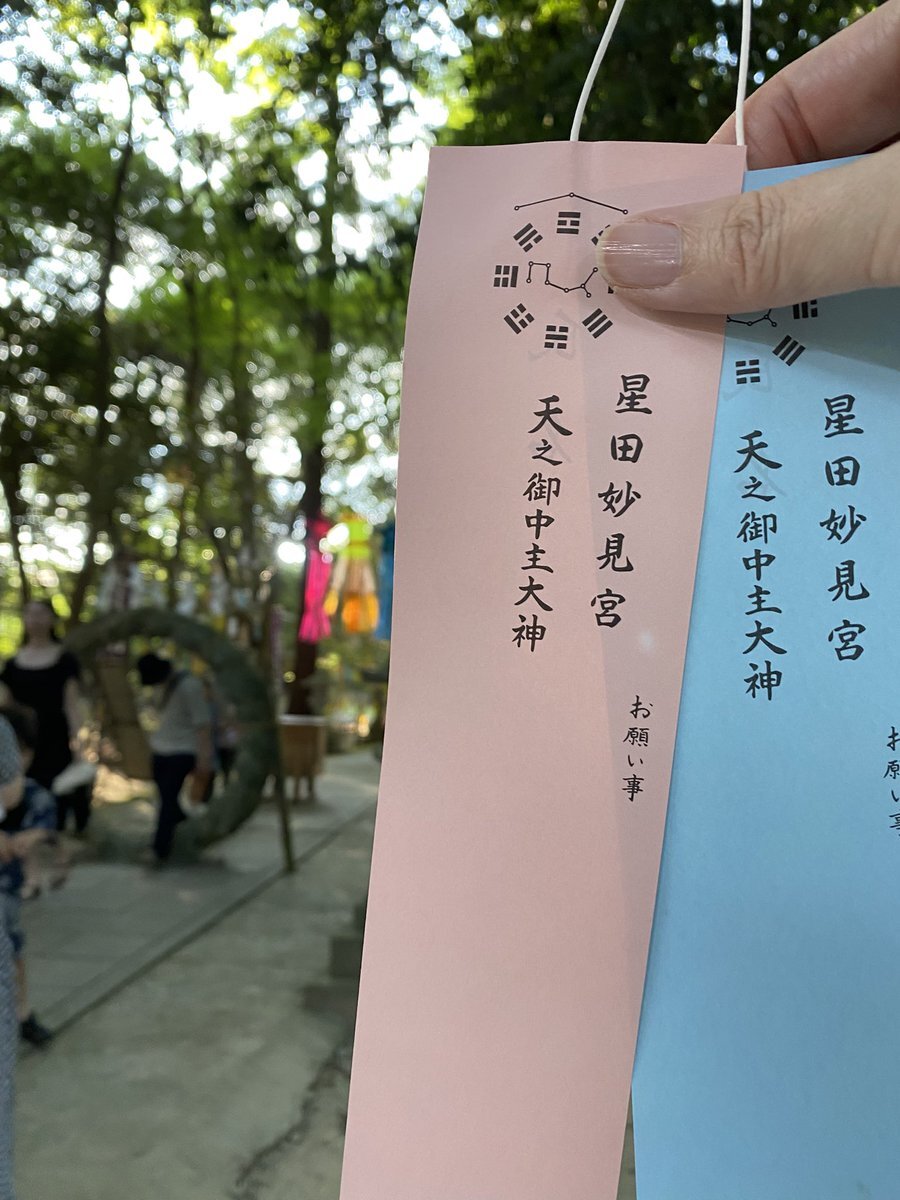 星田妙見宮
天之御中主大神
お願い事
星田妙見宮
天之御中主大神
お願い事